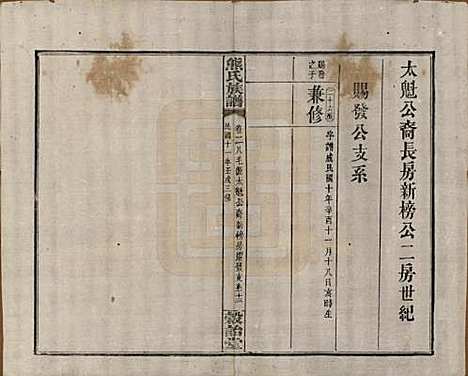 太魁公裔長房新榜公二房世紀
賜發公支系
賜發之子
兼修
字譜成民國十年辛酉十一月十八日亥時生
熊氏族譜
卷二八
太魁公裔新榜房賜發支系
民國十一年壬戌三修
穀詒堂